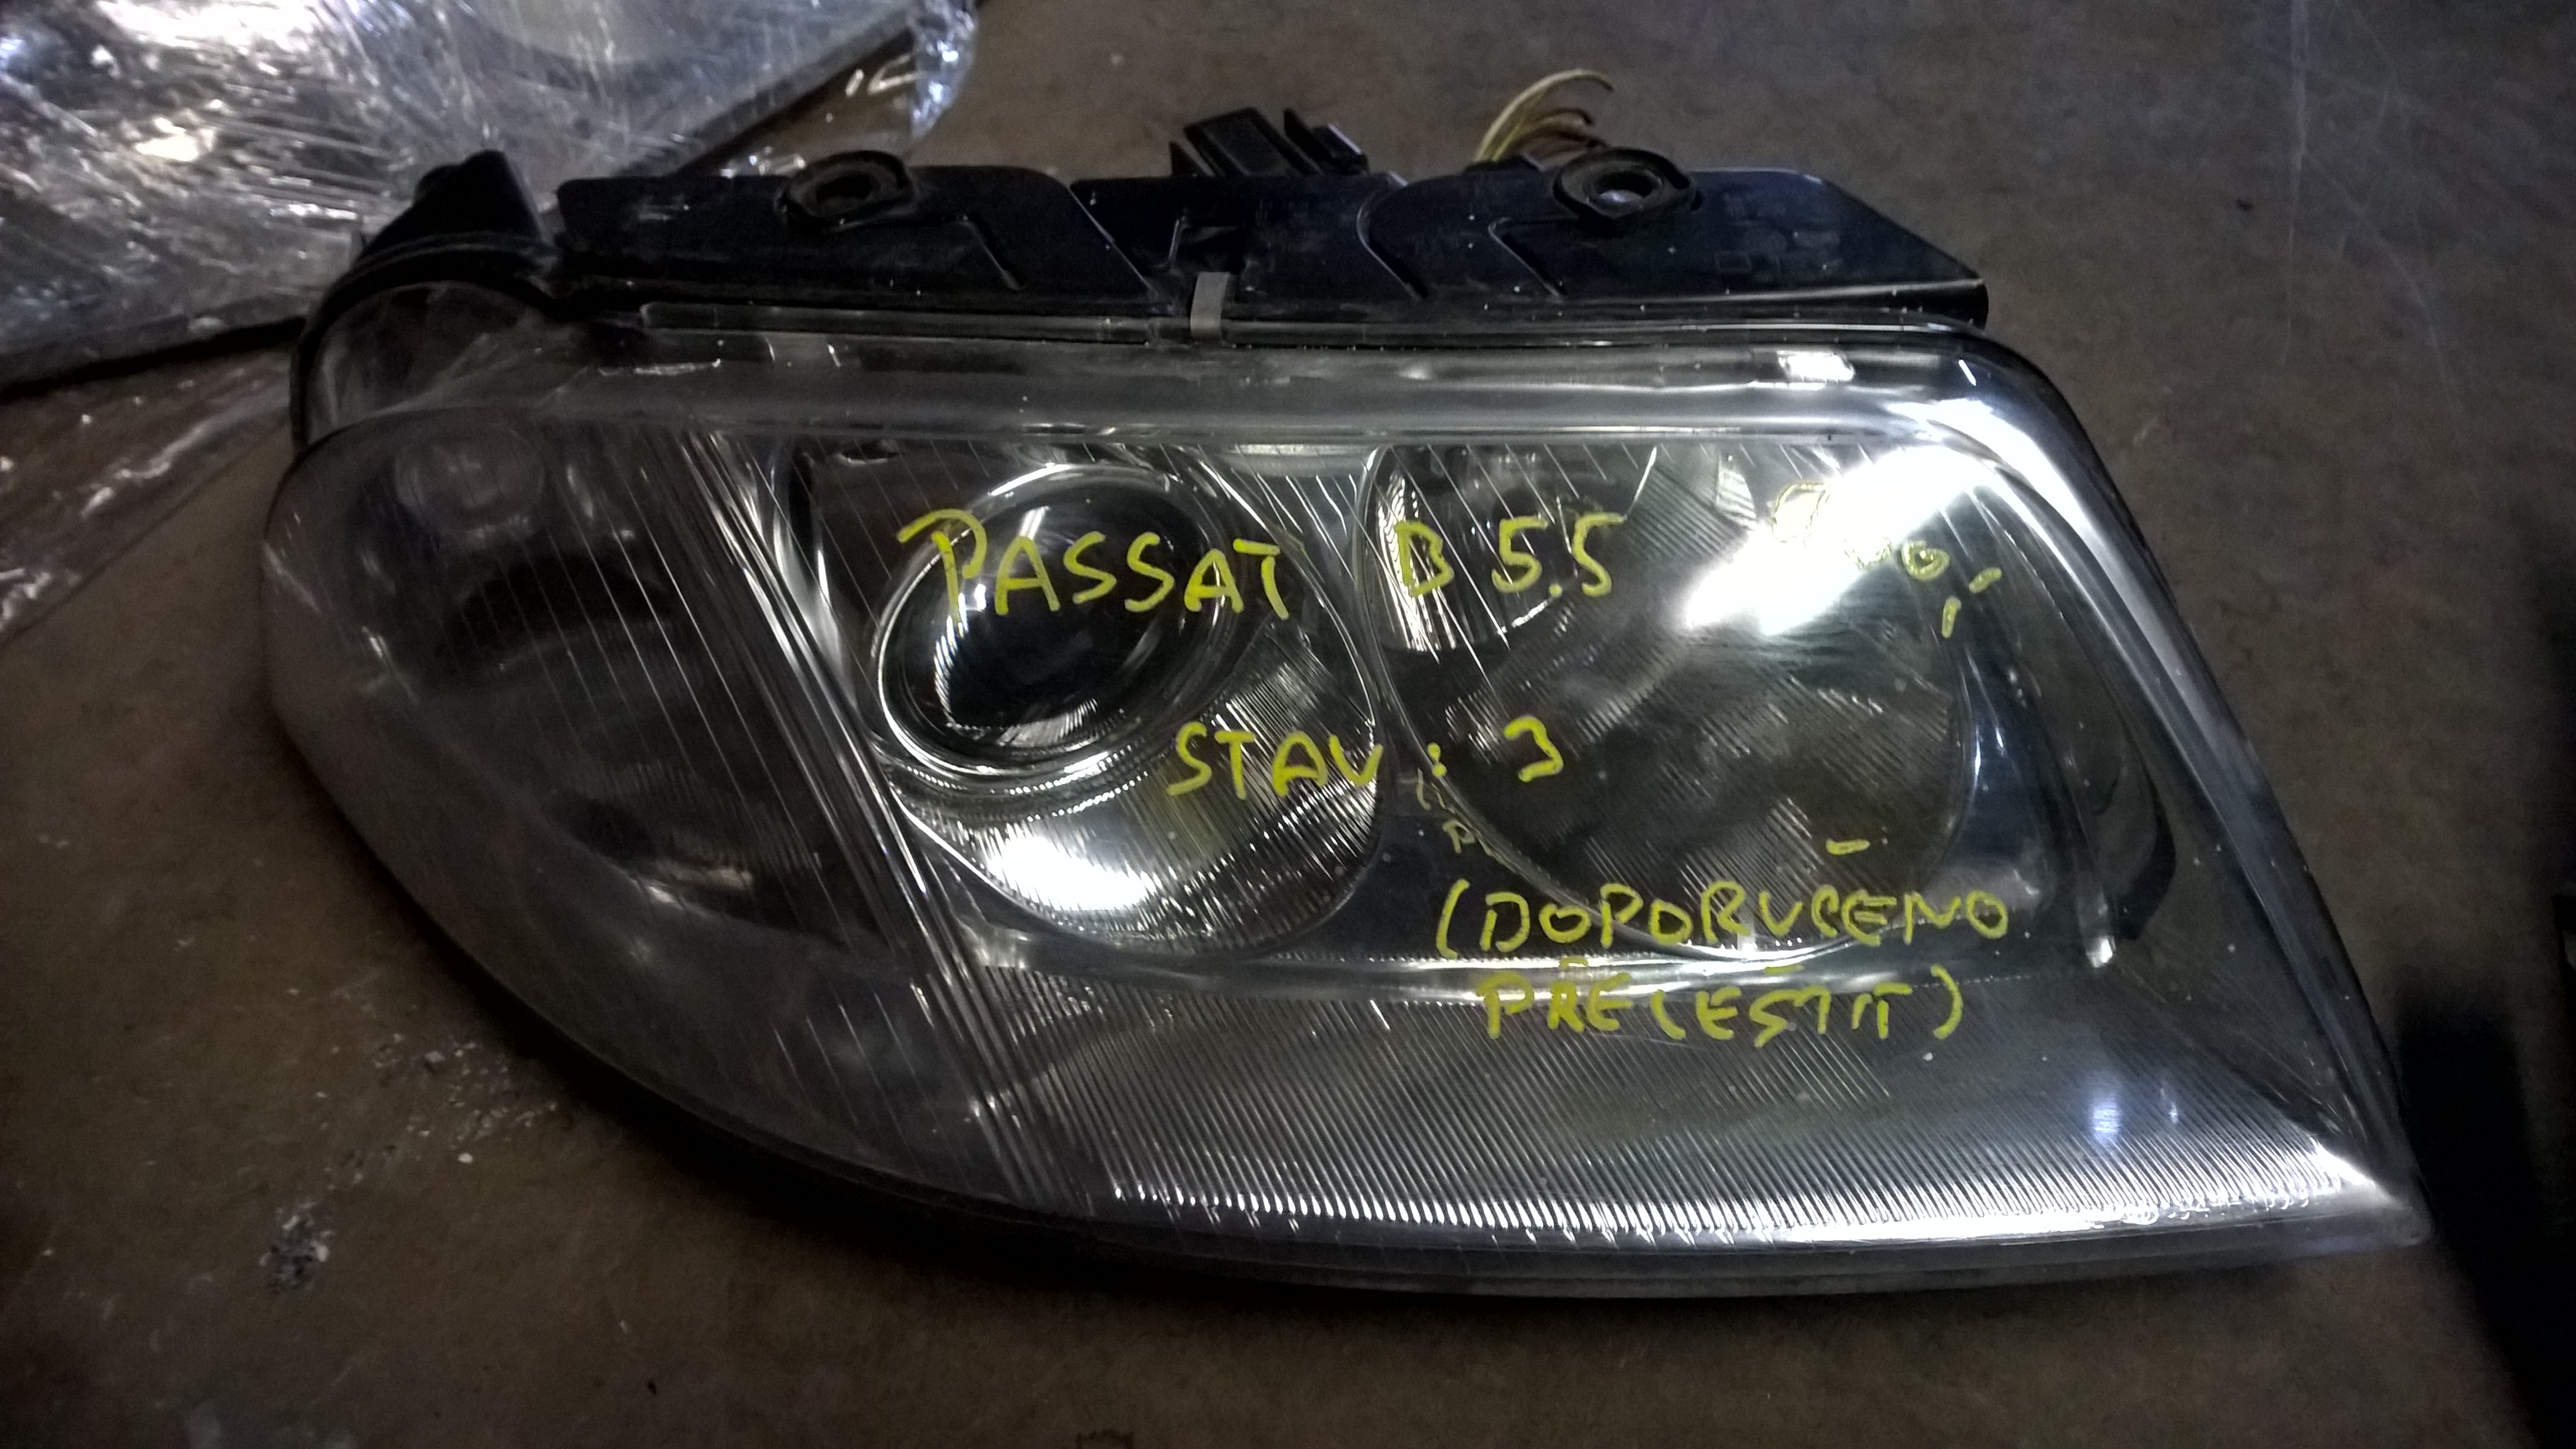 PASSAT B 5.5
STAV : 3
(DOPORUČENO
PŘELEŠTIT)